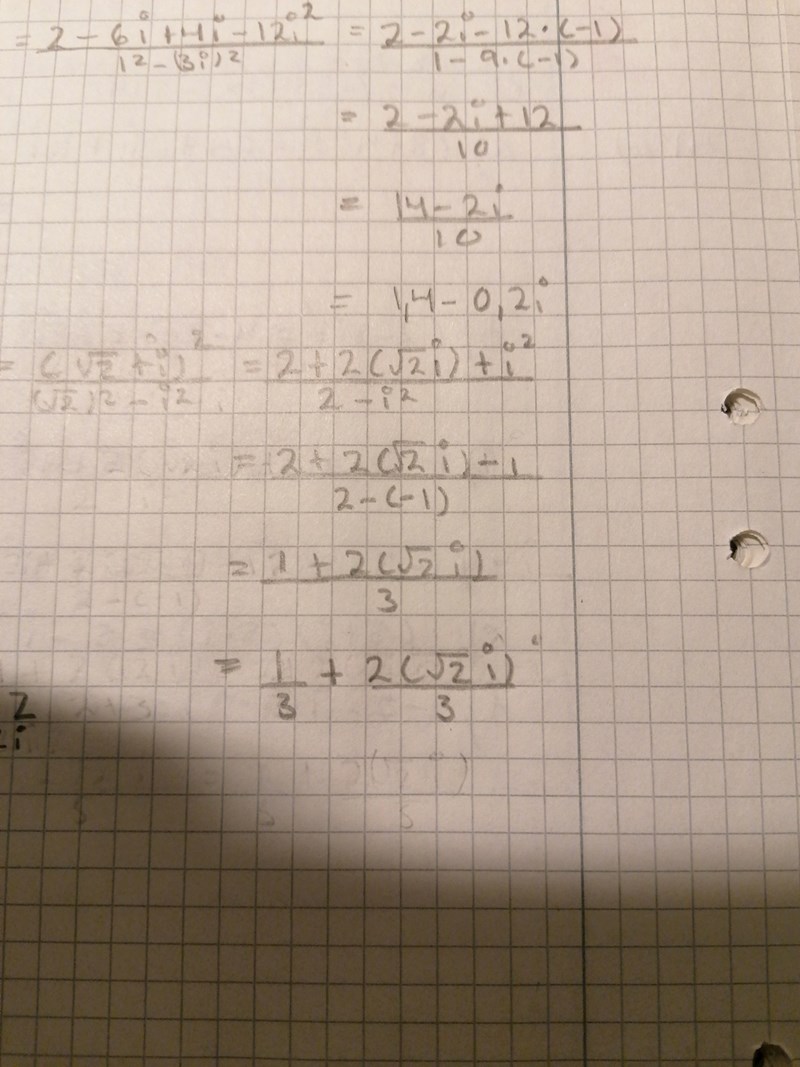 = 2 - 6i + 4i - 12i² / 1² - (3i)² = 2 - 2i - 12 · (-1) / 1 - 9 · (-1)
= 2 - 2i + 12 / 10
= 14 - 2i / 10
= 1,4 - 0,2i
= (√2 + i)² / (√2)² - i² = 2 + 2(√2 i) + i² / 2 - i²
= 2 + 2(√2 i) - 1 / 2 - (-1)
= 1 + 2(√2 i) / 3
= 1/3 + 2(√2 i) / 3